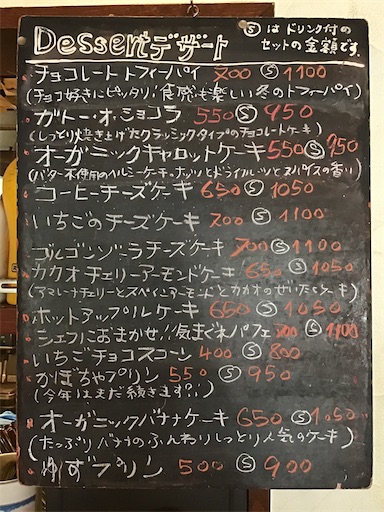 Dessert デザート
Ⓢ は ドリンク付の
セットの金額です。
チョコレートトフィーパイ 700 Ⓢ 1100
(チョコ好きにピッタリ!食感も楽しい冬のトフィーパイ)
ガトー・オ・ショコラ 550 Ⓢ 950
(しっとり焼き上げたクラッシックタイプのチョコレートケーキ)
オーガニックキャロットケーキ 550 Ⓢ 950
(バター不使用のヘルシーケーキ・ナッツとドライフルーツとスパイスの香り)
コーヒーチーズケーキ 650 Ⓢ 1050
いちごのチーズケーキ 700 Ⓢ 1100
ゴルゴンゾーラチーズケーキ 700 Ⓢ 1100
カカオチェリーアーモンドケーキ 650 Ⓢ 1050
(アマレーナチェリーとスペインアーモンドとカカオのぜいたくケーキ)
ホットアップルケーキ 650 Ⓢ 1050
シェフにおまかせ!!気まぐれパフェ 700 Ⓢ 1100
いちごチョコスコーン 400 Ⓢ 800
かぼちゃプリン 550 Ⓢ 950
(今年はまだ続きます?!)
オーガニックバナナケーキ 650 Ⓢ 1050
(たっぷりバナナのふんわりしっとり人気のケーキ)
ゆずプリン 500 Ⓢ 900